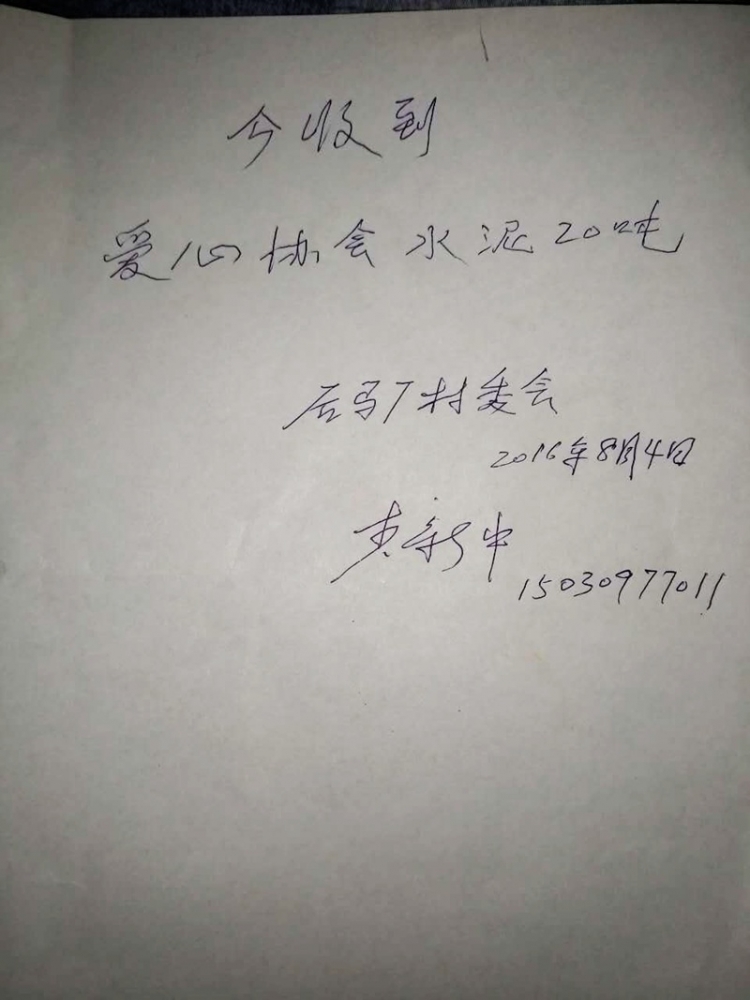 今收到
爱心协会水泥20吨
后马厂村委会
2016年8月4日
新中
15030977011